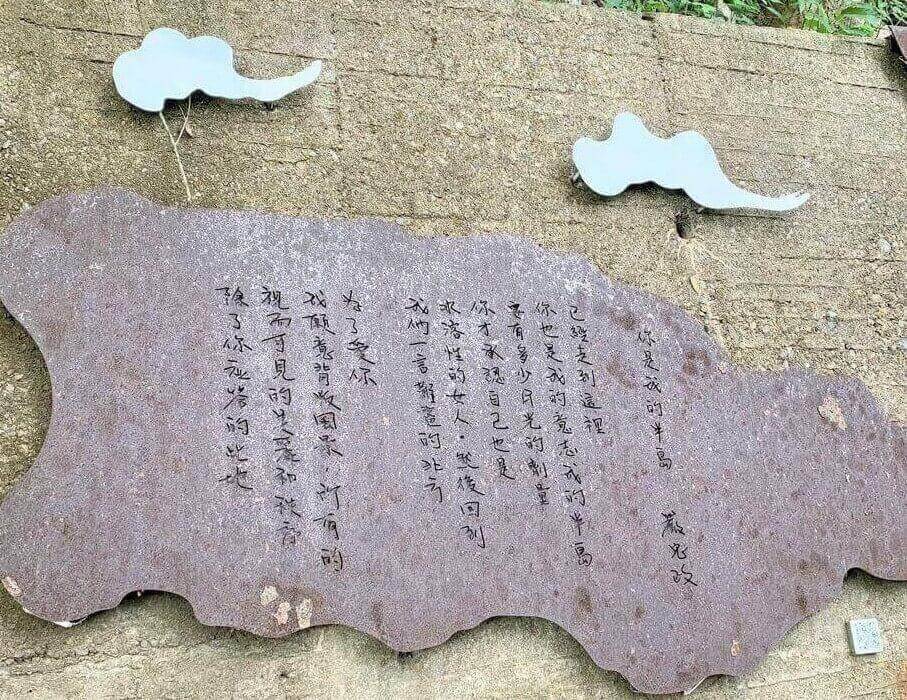 你是我的半島 嚴忠政
已經走到這裡
你也是我的意志我的半島
要有多少月光的劑量
你才承認自己也是
水溶性的女人。然後回到
我們一言難盡的北方
為了愛你
我願意背叛國家,所有的
視而可見的和秩序
除了你的